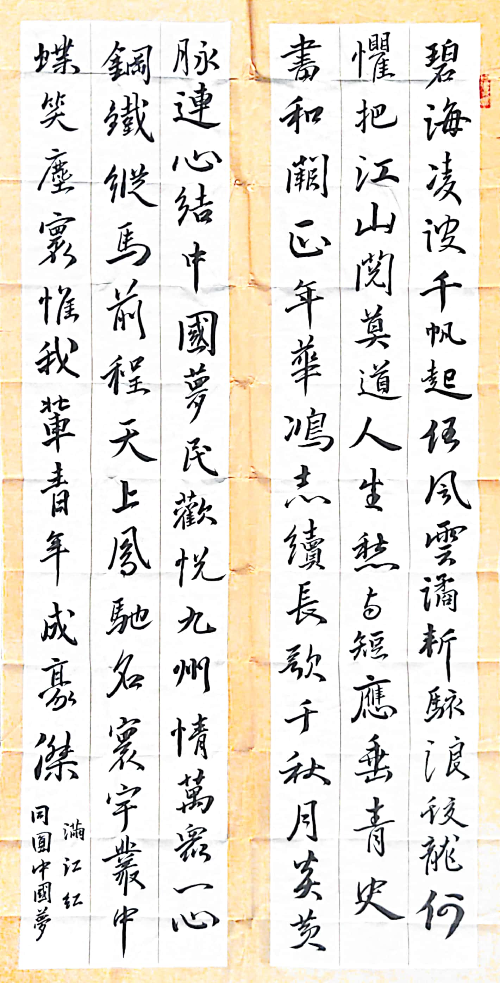 碧海凌波千帆起任风雲譎斬駭浪蛟龍何
懼把江山閱莫道人生愁与短應垂青史
書和闕正年華鴻志續長歌千秋月炎黄
脉連心結中國夢民歡悦九州情萬眾一心
鋼鐵縱馬前程天上鳳馳名寰宇叢中
蝶笑塵寰惟我輩青年成豪傑
滿江紅
同圓中國夢